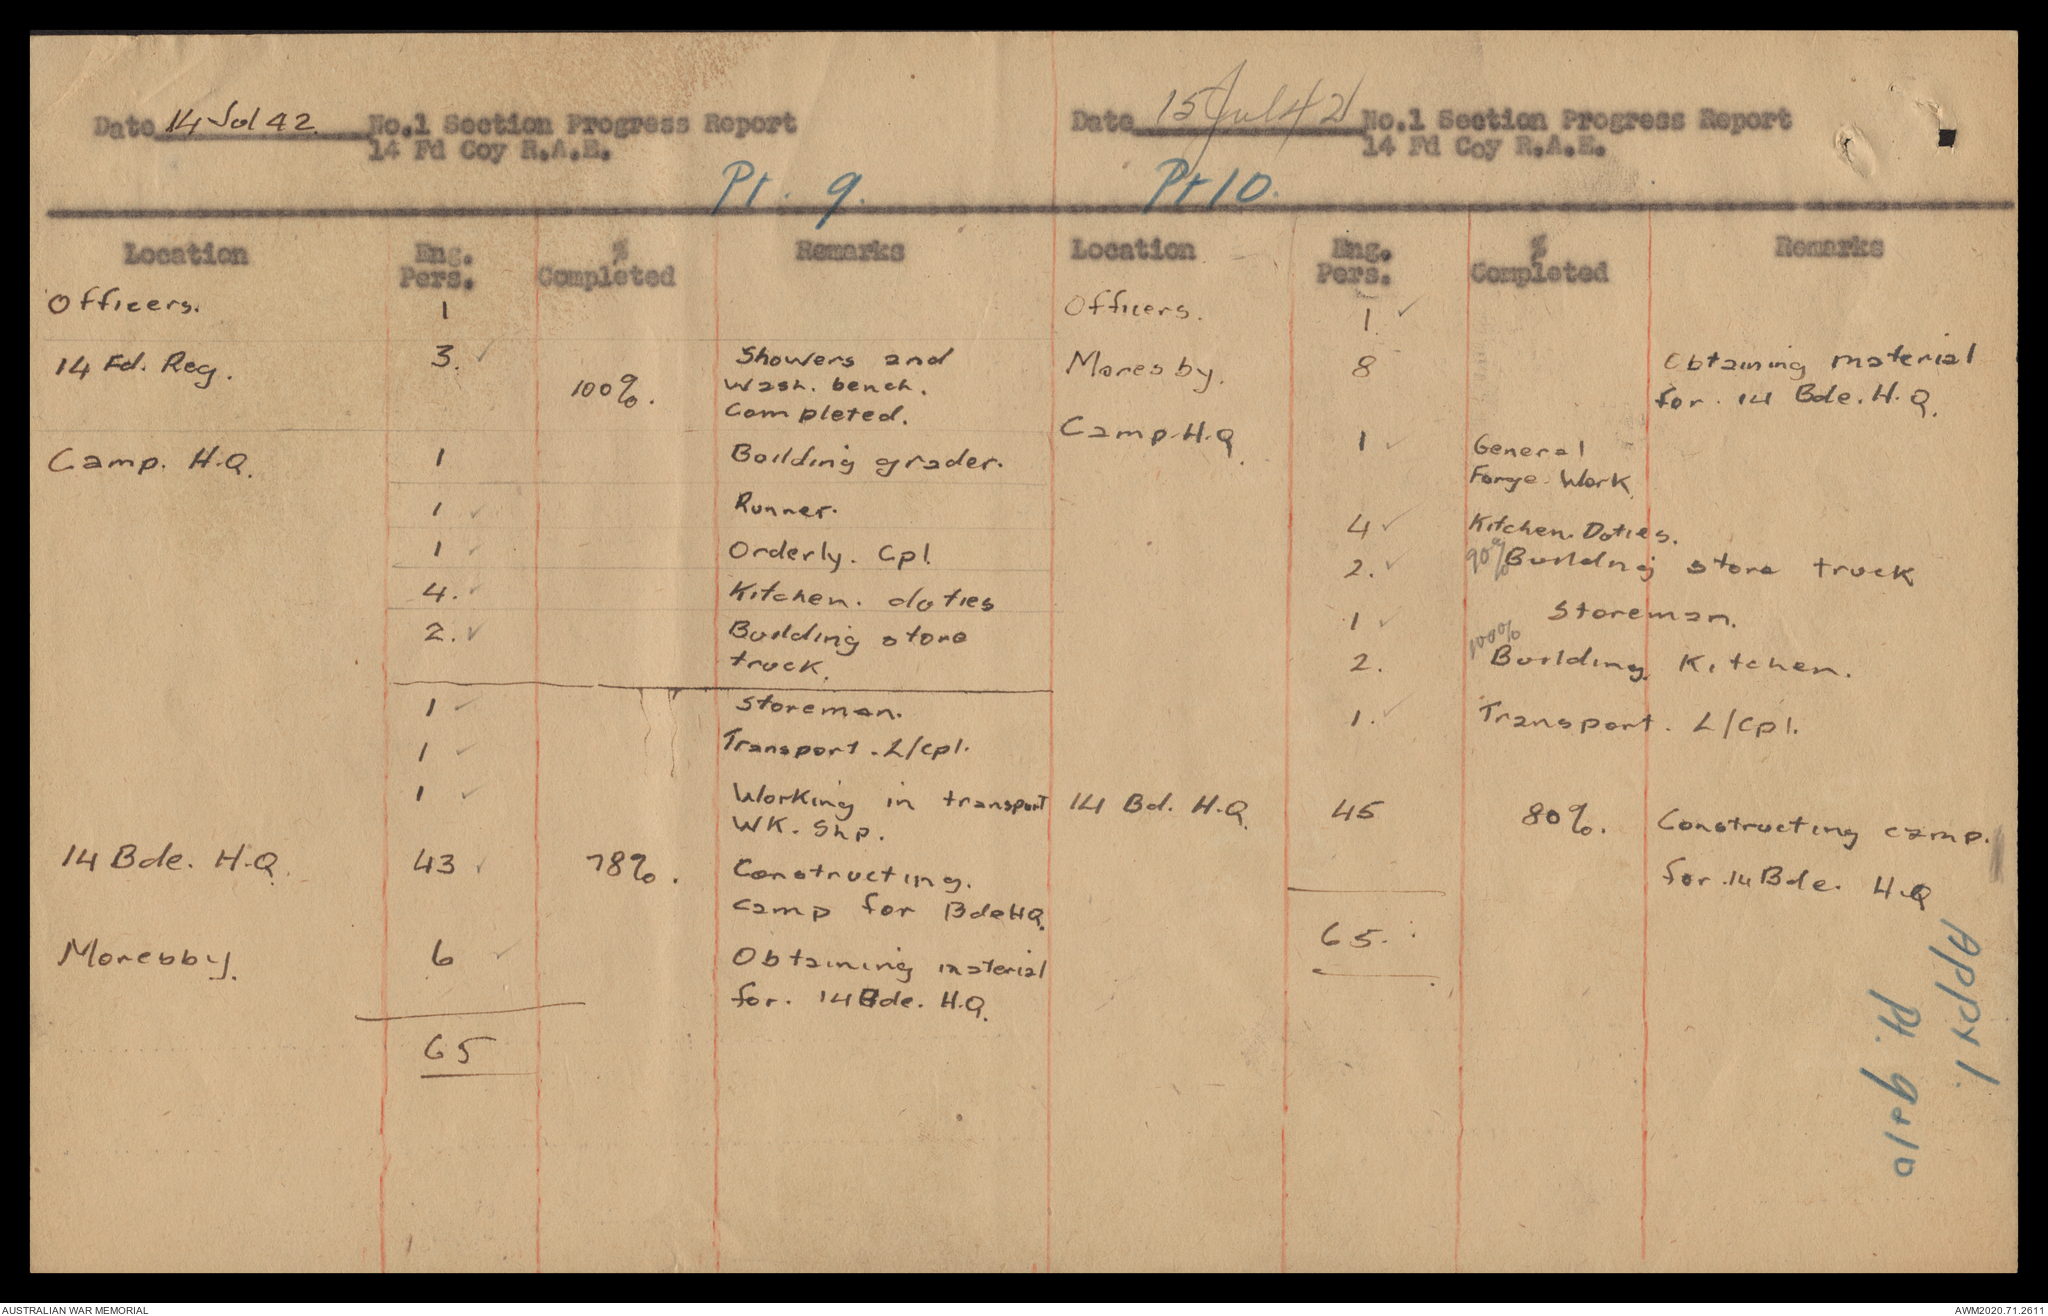 Date 14 Jul 42 No.1 Section Progress Report
14 Fd Coy R.A.E.
Pt. 9.
Location Eng. Pers. % Completed Remarks
Officers. 1
14 Fd. Reg. 3. 100%. Showers and
Wash. bench.
Completed.
Camp. H.Q. 1 Building grader.
1 Runner.
1 Orderly. Cpl.
4. Kitchen. duties
2. Building store
truck.
1 Storeman.
1 Transport. L/Cpl.
1 Working in transport
WK. Shp.
14 Bde. H.Q. 43 78%. Constructing.
camp for Bde HQ.
Moresby. 6 Obtaining material
for. 14 Bde. H.Q.
65
Date 15 Jul 42 No.1 Section Progress Report
14 Fd Coy R.A.E.
Pt 10.
Location Eng. Pers. % Completed Remarks
Officers. 1.
Moresby. 8 Obtaining material
for. 14 Bde. H.Q.
Camp. H.Q. 1 General
Forge. Work.
4 Kitchen. Duties.
2. 90% Building store truck
1 Storeman.
2. 100% Building Kitchen.
1. Transport. L/Cpl.
14 Bd. H.Q. 45 80%. Constructing camp.
for. 14 Bde. H.Q
65.
Appx 1.
Pt. 9 & 10
AUSTRALIAN WAR MEMORIAL
AWM2020.71.2611